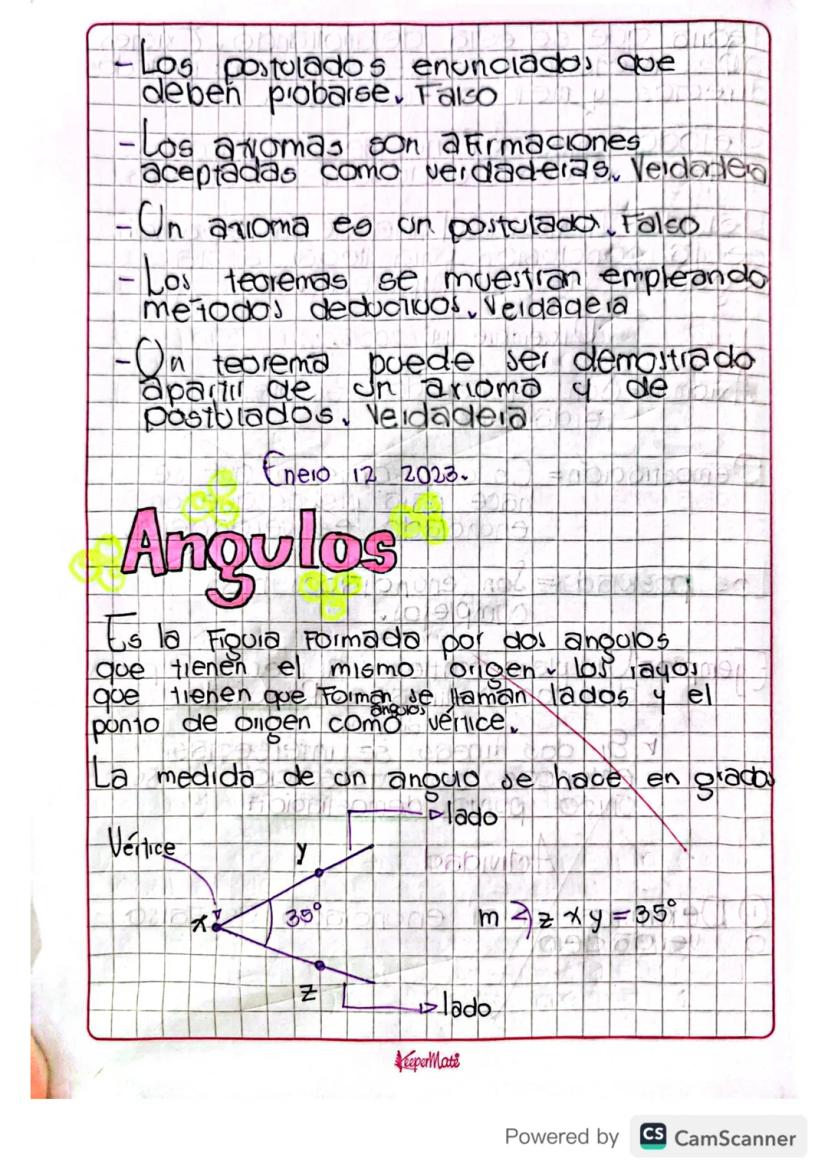 - Los postulados enunciados que
deben probarse. Falso
- Los axiomas son afirmaciones
aceptadas como verdaderas. Verdadera
- Un axioma es un postulado. Falso
- Los teoremas se muestran empleando
metodos deductivos. Verdadera
- Un teorema puede ser demostrado
apartir de un axioma y de
postulados. Verdadera
Enero 12 2023.
Angulos
Es la Figura Formada por dos angulos
que tienen el mismo origen. los rayos
que tienen que Forman se llaman lados y el
angulos
punto de origen como vértice.
La medida de un angulo se hace en grados
lado
Vértice
y
x
35°
m ∠ z x y = 35°
z
lado
KeeperMate
Powered by CS CamScanner